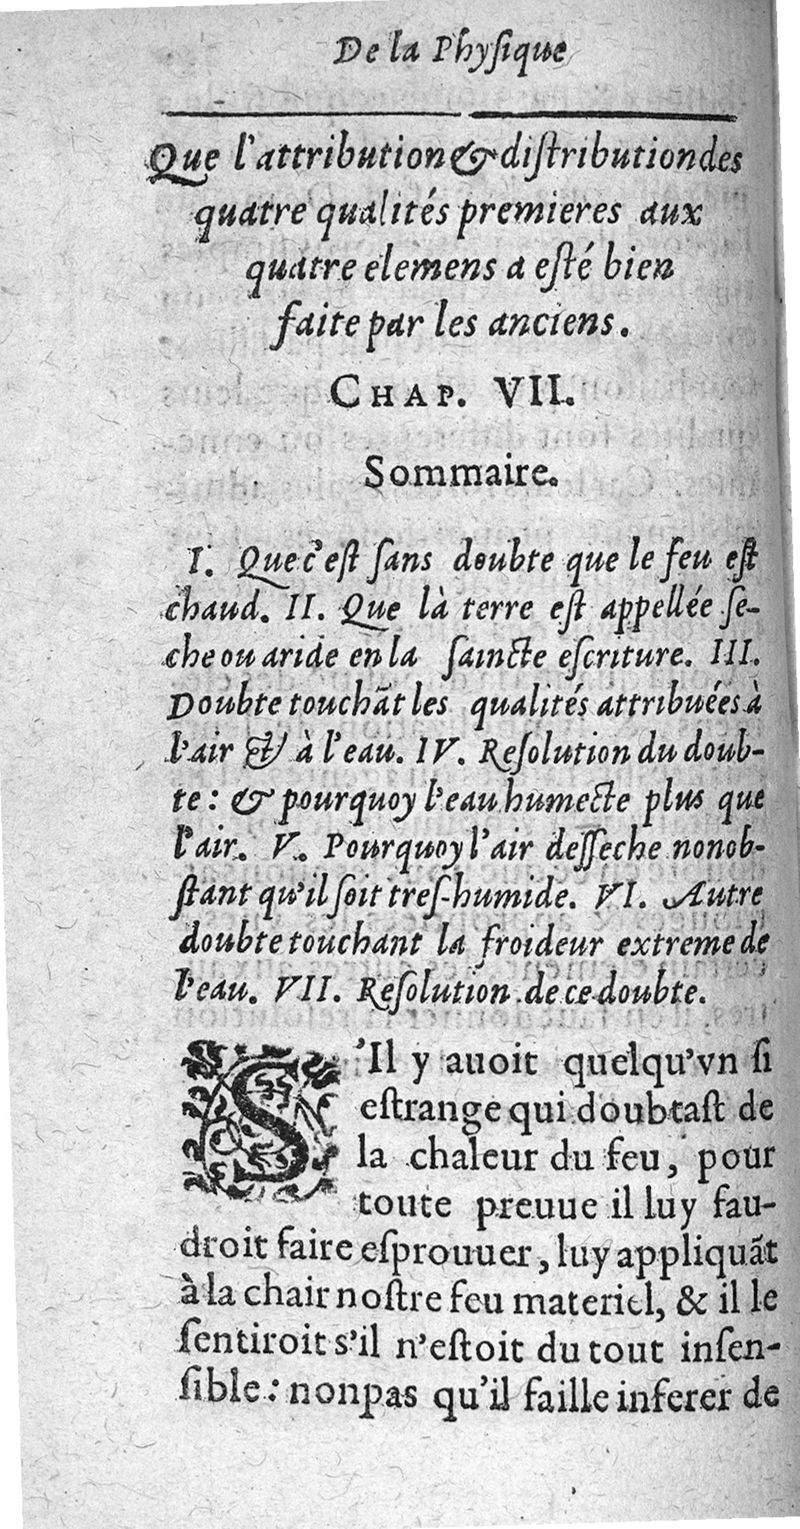 De la Phyſique
Que l'attribution & diſtribution des
quatre qualités premieres aux
quatre elemens a eſté bien
faite par les anciens.
CHAP. VII.
Sommaire.
I. Que c'eſt ſans doubte que le feu eſt
chaud. II. Que là terre eſt appellée ſe-
che ou aride en la ſaincte eſcriture. III.
Doubte touchãt les qualités attribuées à
l'air & à l'eau. IV. Reſolution du doub-
te: & pourquoy l'eau humecte plus que
l'air. V. Pourquoy l'air deſſeche nonob-
ſtant qu'il ſoit treſ-humide. VI. Autre
doubte touchant la froideur extreme de
l'eau. VII. Reſolution de ce doubte.
S'Il y auoit quelqu'vn ſi
eſtrange qui doubtaſt de
la chaleur du feu, pour
toute preuue il luy fau-
droit faire eſprouuer, luy appliquãt
à la chair noſtre feu materiel, & il le
ſentiroit s'il n'eſtoit du tout inſen-
ſible: nonpas qu'il faille inferer de